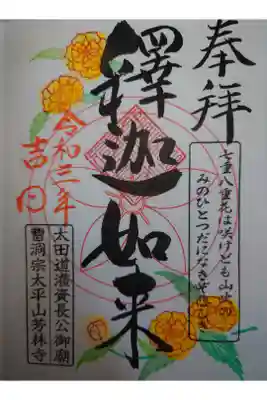 奉拝
七重八重花は咲けども山吹の
みのひとつだになきぞ
釋迦如来
令和三年
吉日
太田道灌資長公御廟
曹洞宗太平山芳林寺